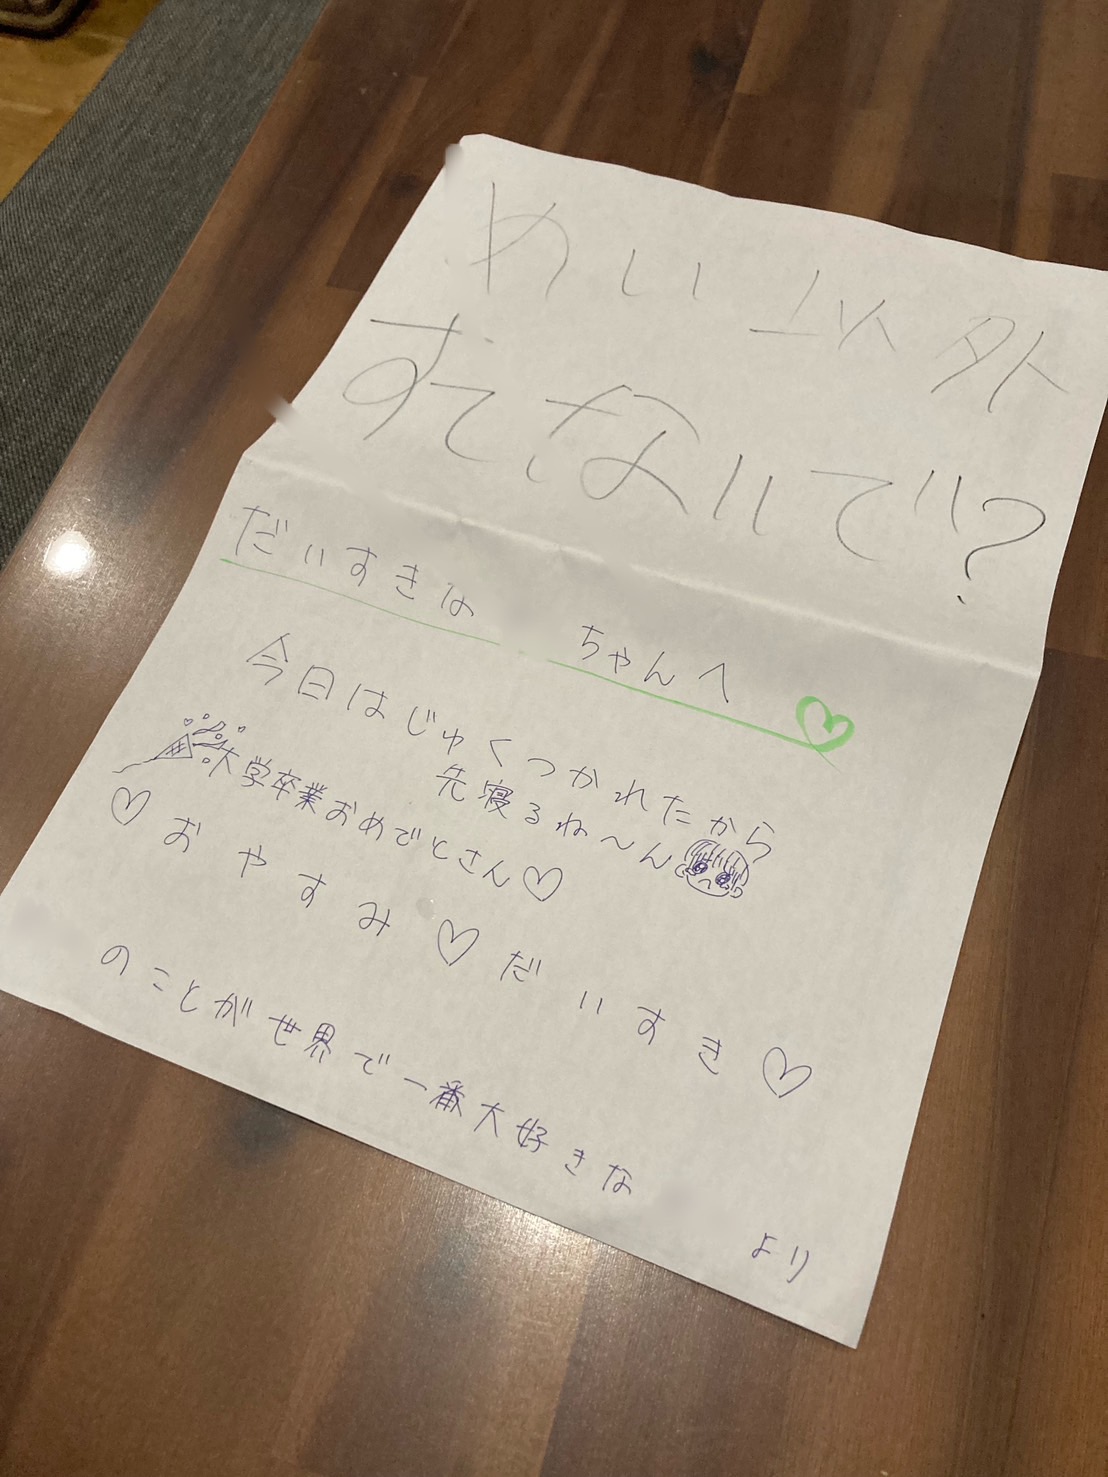 めい以外
すてないで?
だいすきな ちゃんへ
今日はじゅくつかれたから
先寝るね〜ん
大学卒業おめでとさん♡
♡おやすみ♡だいすき♡
のことが世界で一番大好きな
より